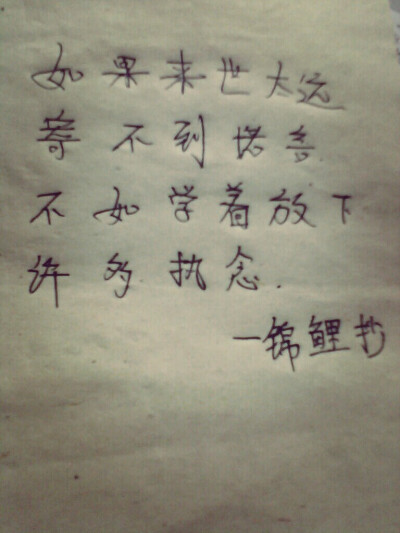 如果来世太远
寄不到诺言
不如学着放下
许多执念.
—锦鲤抄